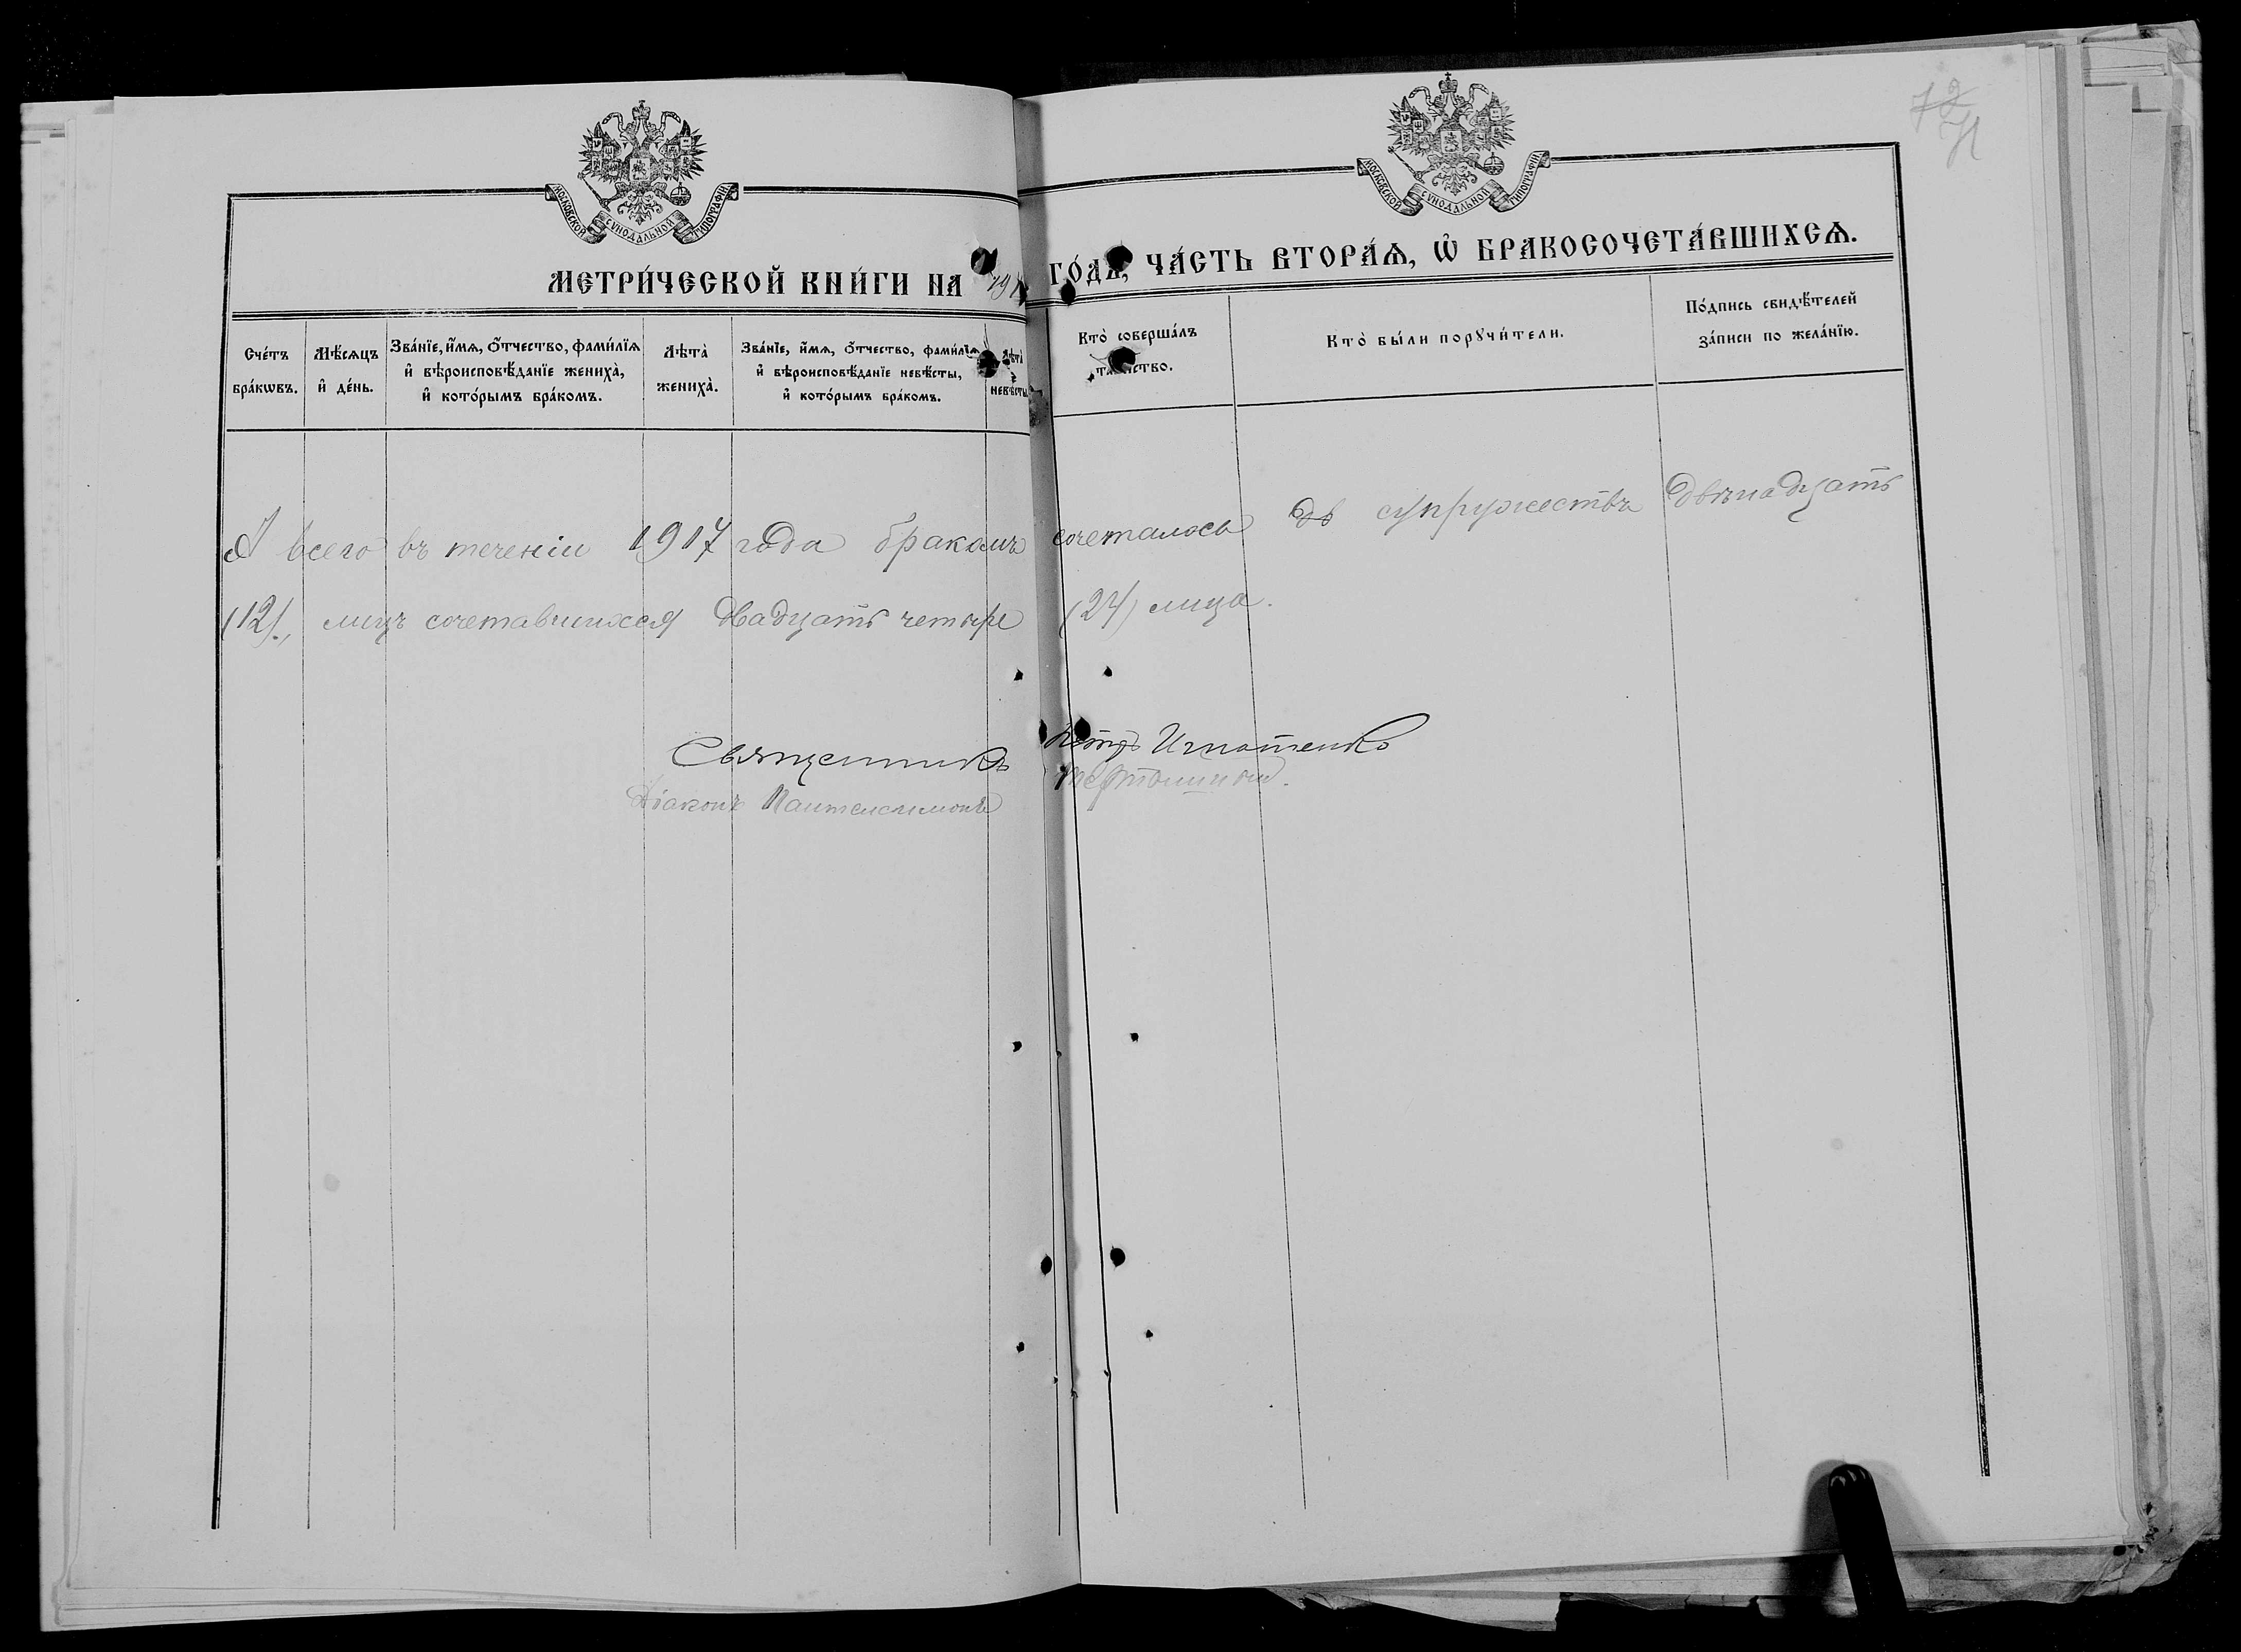 МОСКОВСКОЙ СѴНОДАЛЬНОЙ ТИПОГРАФІИ
МОСКОВСКОЙ СѴНОДАЛЬНОЙ ТИПОГРАФІИ
МЕТРИ́ЧЕСКОЙ КНИ́ГИ НА 191 ГО́ДЪ, ЧА́СТЬ ВТОРА́Ѧ, Ѡ҆ БРАКОСОЧЕТА́ВШИХСѦ.
Сче́тъ бра́кѡвъ.
Мѣ́сѧцъ и҆ де́нь.
Зва́нїе, и҆́мѧ, ѻ҆́тчество, фами́лїѧ и҆ вѣроисповѣ́данїе жениха̀, и҆ кото́рымъ бра́комъ.
Лѣта̀ жениха̀.
Зва́нїе, и҆́мѧ, ѻ҆́тчество, фами́лїѧ и҆ вѣроисповѣ́данїе невѣ́сты, и҆ кото́рымъ бра́комъ.
Лѣта̀ невѣ́сты
Кто̀ соверша́лъ таинство.
Кто̀ бы́ли порꙋчи́тели.
По́дпись свидѣ́телей за́писи по жела́нїю.
А всего въ теченіи 1917 года бракомъ сочеталось супружествъ двѣнадцать
(12), лицъ сочетавшихся двадцать четыре (24) лица.
Священникъ Петръ Игнатенко
Діаконъ Пантелеимонъ